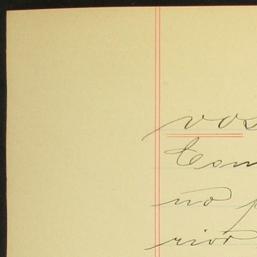 vos
Com
no p
rior